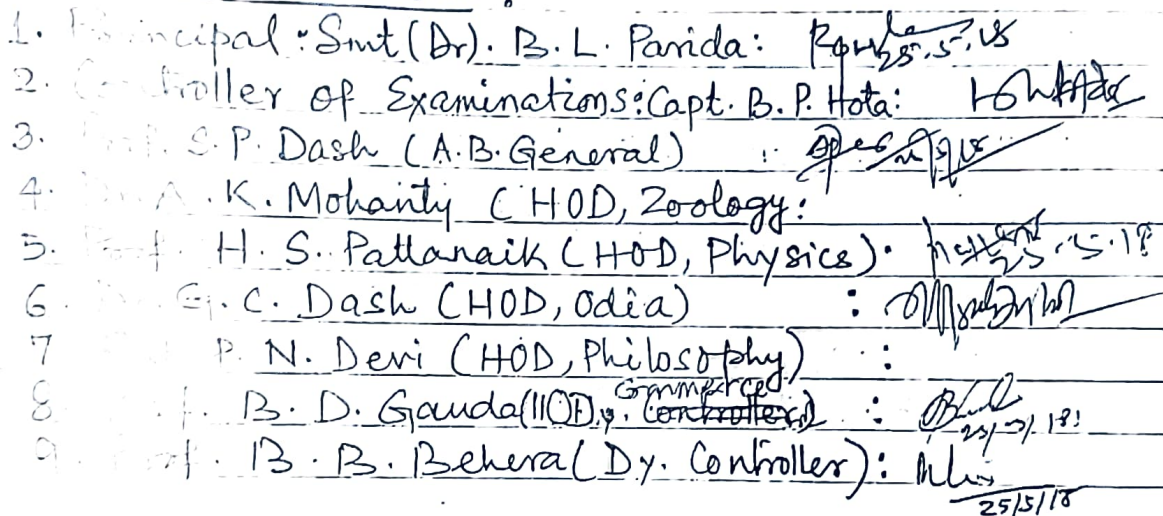 1. Principal : Smt (Dr). B. L. Parida: 25.5.18
2. Controller of Examinations: Capt. B. P. Hota:
3. S. P. Dash (A.B. General) :
4. K. Mohanty (HOD, Zoology:
5. Prof. H. S. Pattanaik (HOD, Physics). 25.5.18
6. G. C. Dash (HOD, Odia) :
7 P. N. Devi (HOD, Philosophy) :
Commerce)
8 B. D. Gauda (HOD, :
9. Prof. B. B. Behera (Dy. Controller):
25/5/18